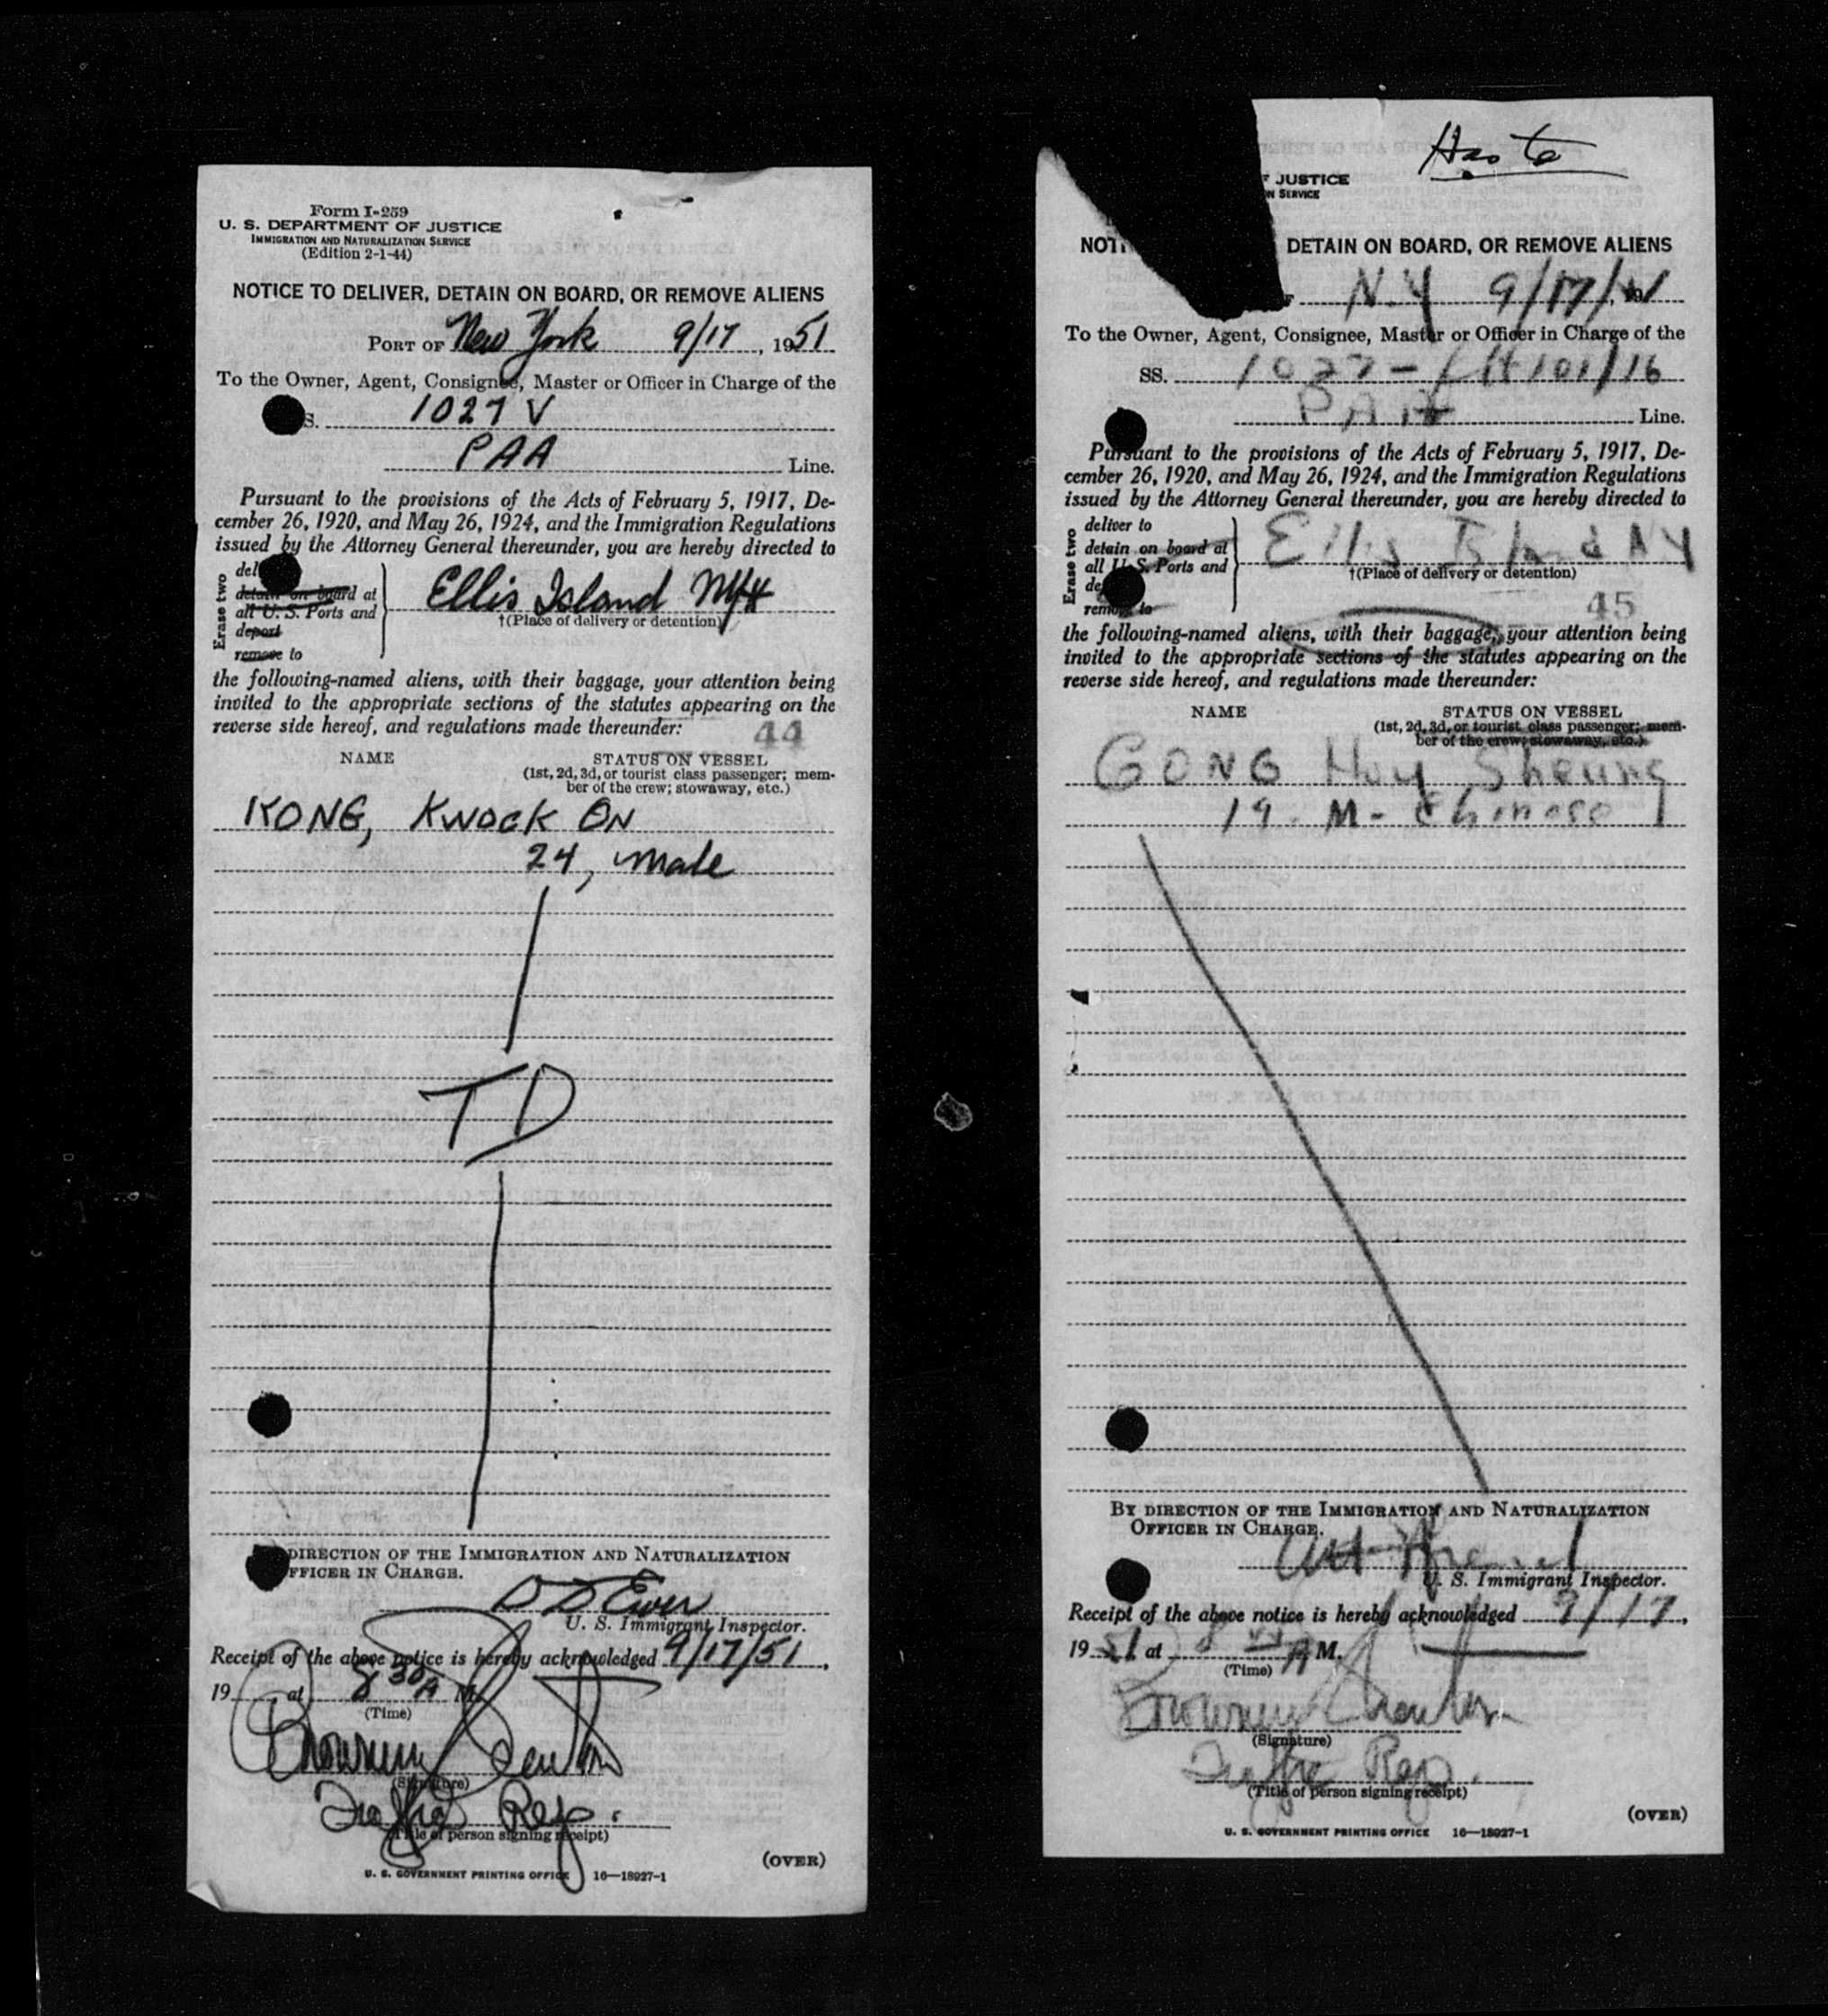 Form I-259
U. S. DEPARTMENT OF JUSTICE
IMMIGRATION AND NATURALIZATION SERVICE
(Edition 2-1-44)
NOTICE TO DELIVER, DETAIN ON BOARD, OR REMOVE ALIENS
PORT OF New York 9/17, 1951
To the Owner, Agent, Consignee, Master or Officer in Charge of the
S. 1027 V
PAA Line.
Pursuant to the provisions of the Acts of February 5, 1917, De-
cember 26, 1920, and May 26, 1924, and the Immigration Regulations
issued by the Attorney General thereunder, you are hereby directed to
Erase two
del
detain on board at
all U. S. Ports and
deport
remove to
Ellis Island
†(Place of delivery or detention)
the following-named aliens, with their baggage, your attention being
invited to the appropriate sections of the statutes appearing on the
reverse side hereof, and regulations made thereunder:
44
NAME STATUS ON VESSEL
(1st, 2d, 3d, or tourist class passenger; mem-
ber of the crew; stowaway, etc.)
KONG, KWOCK ON
24, male
TD
DIRECTION OF THE IMMIGRATION AND NATURALIZATION
FFICER IN CHARGE.
U. S. Immigrant Inspector.
Receipt of the above notice is hereby acknowledged 9/17/51,
19 at 8 30 A M.
(Time)
(Signature)
Rep.
(Title of person signing receipt)
(OVER)
U. S. GOVERNMENT PRINTING OFFICE 16—18927-1
F JUSTICE
N SERVICE
NOTI DETAIN ON BOARD, OR REMOVE ALIENS
N.Y 9/17/
To the Owner, Agent, Consignee, Master or Officer in Charge of the
SS. 1027 - 101/16
PAA Line.
Pursuant to the provisions of the Acts of February 5, 1917, De-
cember 26, 1920, and May 26, 1924, and the Immigration Regulations
issued by the Attorney General thereunder, you are hereby directed to
Erase two
deliver to
detain on board at
all U. S. Ports and
de
remove to
Ellis Island NY
†(Place of delivery or detention)
45
the following-named aliens, with their baggage, your attention being
invited to the appropriate sections of the statutes appearing on the
reverse side hereof, and regulations made thereunder:
NAME STATUS ON VESSEL
(1st, 2d, 3d, or tourist class passenger; mem-
ber of the crew; stowaway, etc.)
GONG Huy Sheung
19. M- Chinese
BY DIRECTION OF THE IMMIGRATION AND NATURALIZATION
OFFICER IN CHARGE.
U. S. Immigrant Inspector.
Receipt of the above notice is hereby acknowledged 9/17,
1951 at 8 A M.
(Time)
(Signature)
Rep.
(Title of person signing receipt)
(OVER)
U. S. GOVERNMENT PRINTING OFFICE 16—18927-1